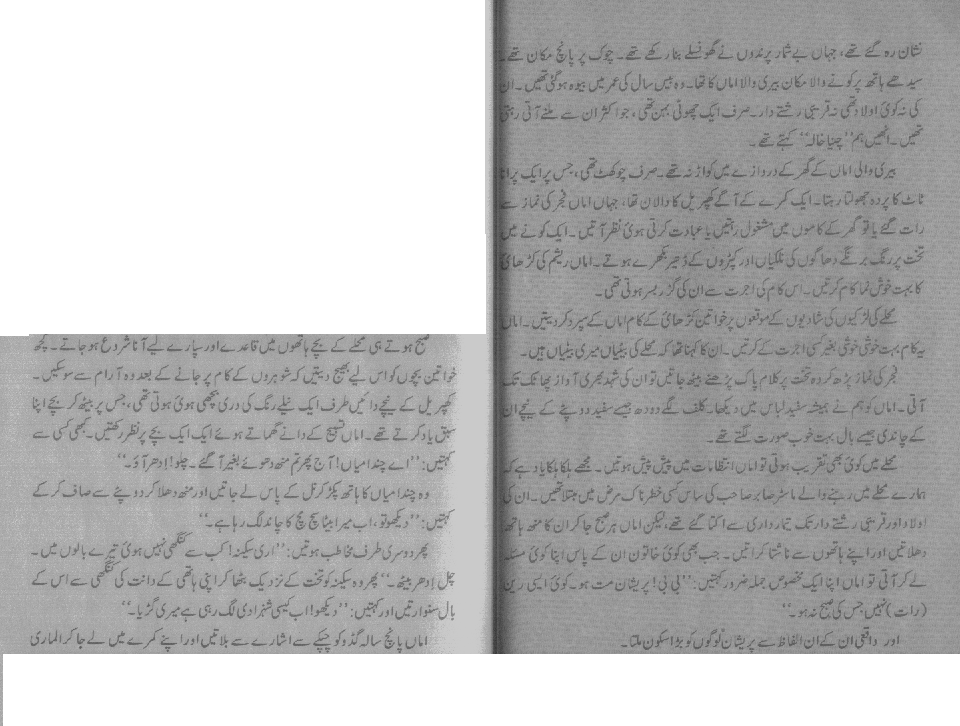 نشان رہ گئے تھے، جہاں بے شمار پرندوں نے گھونسلے بنا رکھے تھے۔ چوک پر پانچ مکان تھے۔
سیدھے ہاتھ پر کونے والا مکان بیری والی اماں کا تھا۔ وہ بیس سال کی عمر میں بیوہ ہوگئی تھیں۔ ان
کی نہ کوئی اولاد تھی نہ قریبی رشتے دار۔ صرف ایک چھوٹی بہن تھی، جو اکثر ان سے ملنے آتی رہتی
تھیں۔ انھیں ہم ’’چنیا خالہ‘‘ کہتے تھے۔
بیری والی اماں کے گھر کے دروازے میں کواڑ نہ تھے۔ صرف چوکھٹ تھی، جس پر ایک پرانا
ٹاٹ کا پردہ جھولتا رہتا۔ ایک کمرے کے آگے کھپریل کا دالان تھا، جہاں اماں فجر کی نماز سے
رات گئے یا تو گھر کے کاموں میں مشغول رہتیں یا عبادت کرتی ہوئی نظر آتیں۔ ایک کونے میں
تخت پر رنگ برنگے دھاگوں کی نلکیاں اور کپڑوں کے ڈھیر بکھرے ہوتے۔ اماں ریشم کی کڑھائی
کا بہت خوش نما کام کرتیں۔ اس کام کی اجرت سے ان کی گزر بسر ہوتی تھی۔
محلے کی لڑکیوں کی شادیوں کے موقعوں پر خواتین کڑھائی کے کام اماں کے سپرد کر دیتیں۔ اماں
یہ کام بہت خوشی خوشی بغیر کسی اجرت کے کرتیں۔ ان کا کہنا تھا کہ محلے کی بیٹیاں میری بیٹیاں ہیں۔
فجر کی نماز پڑھ کر وہ تخت پر کلام پاک پڑھنے بیٹھ جاتیں تو ان کی شہد بھری آواز پھاٹک تک
آتی۔ اماں کو ہم نے ہمیشہ سفید لباس میں دیکھا۔ کلف لگے دودھ جیسے سفید دوپٹے کے نیچے ان
کے چاندی جیسے بال بہت خوب صورت لگتے تھے۔
محلے میں کوئی بھی تقریب ہوتی تو اماں انتظامات میں پیش پیش ہوتیں۔ مجھے ہلکا ہلکا یاد ہے کہ
ہمارے محلے میں رہنے والے ماسٹر صابر صاحب کی ساس کسی خطرناک مرض میں مبتلا تھیں۔ ان کی
اولاد اور قریبی رشتے دار تک تیمارداری سے اکتا گئے تھے، لیکن اماں ہر صبح جا کر ان کا منھ ہاتھ
دھلاتیں اور اپنے ہاتھوں سے ناشتا کراتیں۔ جب بھی کوئی خاتون ان کے پاس اپنا کوئی مسئلہ
لے کر آتی تو اماں اپنا ایک مخصوص جملہ ضرور کہتیں: ’’بی بی! پریشان مت ہو۔ کوئی ایسی رین
(رات) نہیں جس کی صبح نہ ہو۔‘‘
اور واقعی ان کے ان الفاظ سے پریشان لوگوں کو بڑا سکون ملتا۔
صبح ہوتے ہی محلے کے بچے ہاتھوں میں قاعدے اور سپارے لیے آنا شروع ہو جاتے۔ کچھ
خواتین بچوں کو اس لیے بھیج دیتیں کہ شوہروں کے کام پر جانے کے بعد وہ آرام سے سو سکیں۔
کھپریل کے نیچے دائیں طرف ایک نیلے رنگ کی دری بچھی ہوئی ہوتی تھی، جس پر بیٹھ کر بچے اپنا
سبق یاد کرتے تھے۔ اماں تسبیح کے دانے گھماتے ہوئے ایک ایک بچے پر نظر رکھتیں۔ کبھی کسی سے
کہتیں: ’’اے چندا میاں! آج پھر تم منھ دھوئے بغیر آ گئے۔ چلو! اِدھر آؤ۔‘‘
وہ چندا میاں کا ہاتھ پکڑ کر نل کے پاس لے جاتیں اور منھ دھلا کر دوپٹے سے صاف کر کے
کہتیں: ’’دیکھو تو، اب میرا بیٹا سچ مچ کا چاند لگ رہا ہے۔‘‘
پھر دوسری طرف مخاطب ہوتیں: ’’اری سکینہ! کب سے کنگھی نہیں ہوئی تیرے بالوں میں۔
چل اِدھر بیٹھ۔‘‘ پھر وہ سکینہ کو تخت کے نزدیک بٹھا کر اپنی ہاتھی کے دانت کی کنگھی سے اس کے
بال سنوارتیں اور کہتیں: ’’دیکھو! اب کیسی شہزادی لگ رہی ہے میری گڑیا۔‘‘
اماں پانچ سالہ گڈو کو چپکے سے اشارے سے بلاتیں اور اپنے کمرے میں لے جا کر الماری